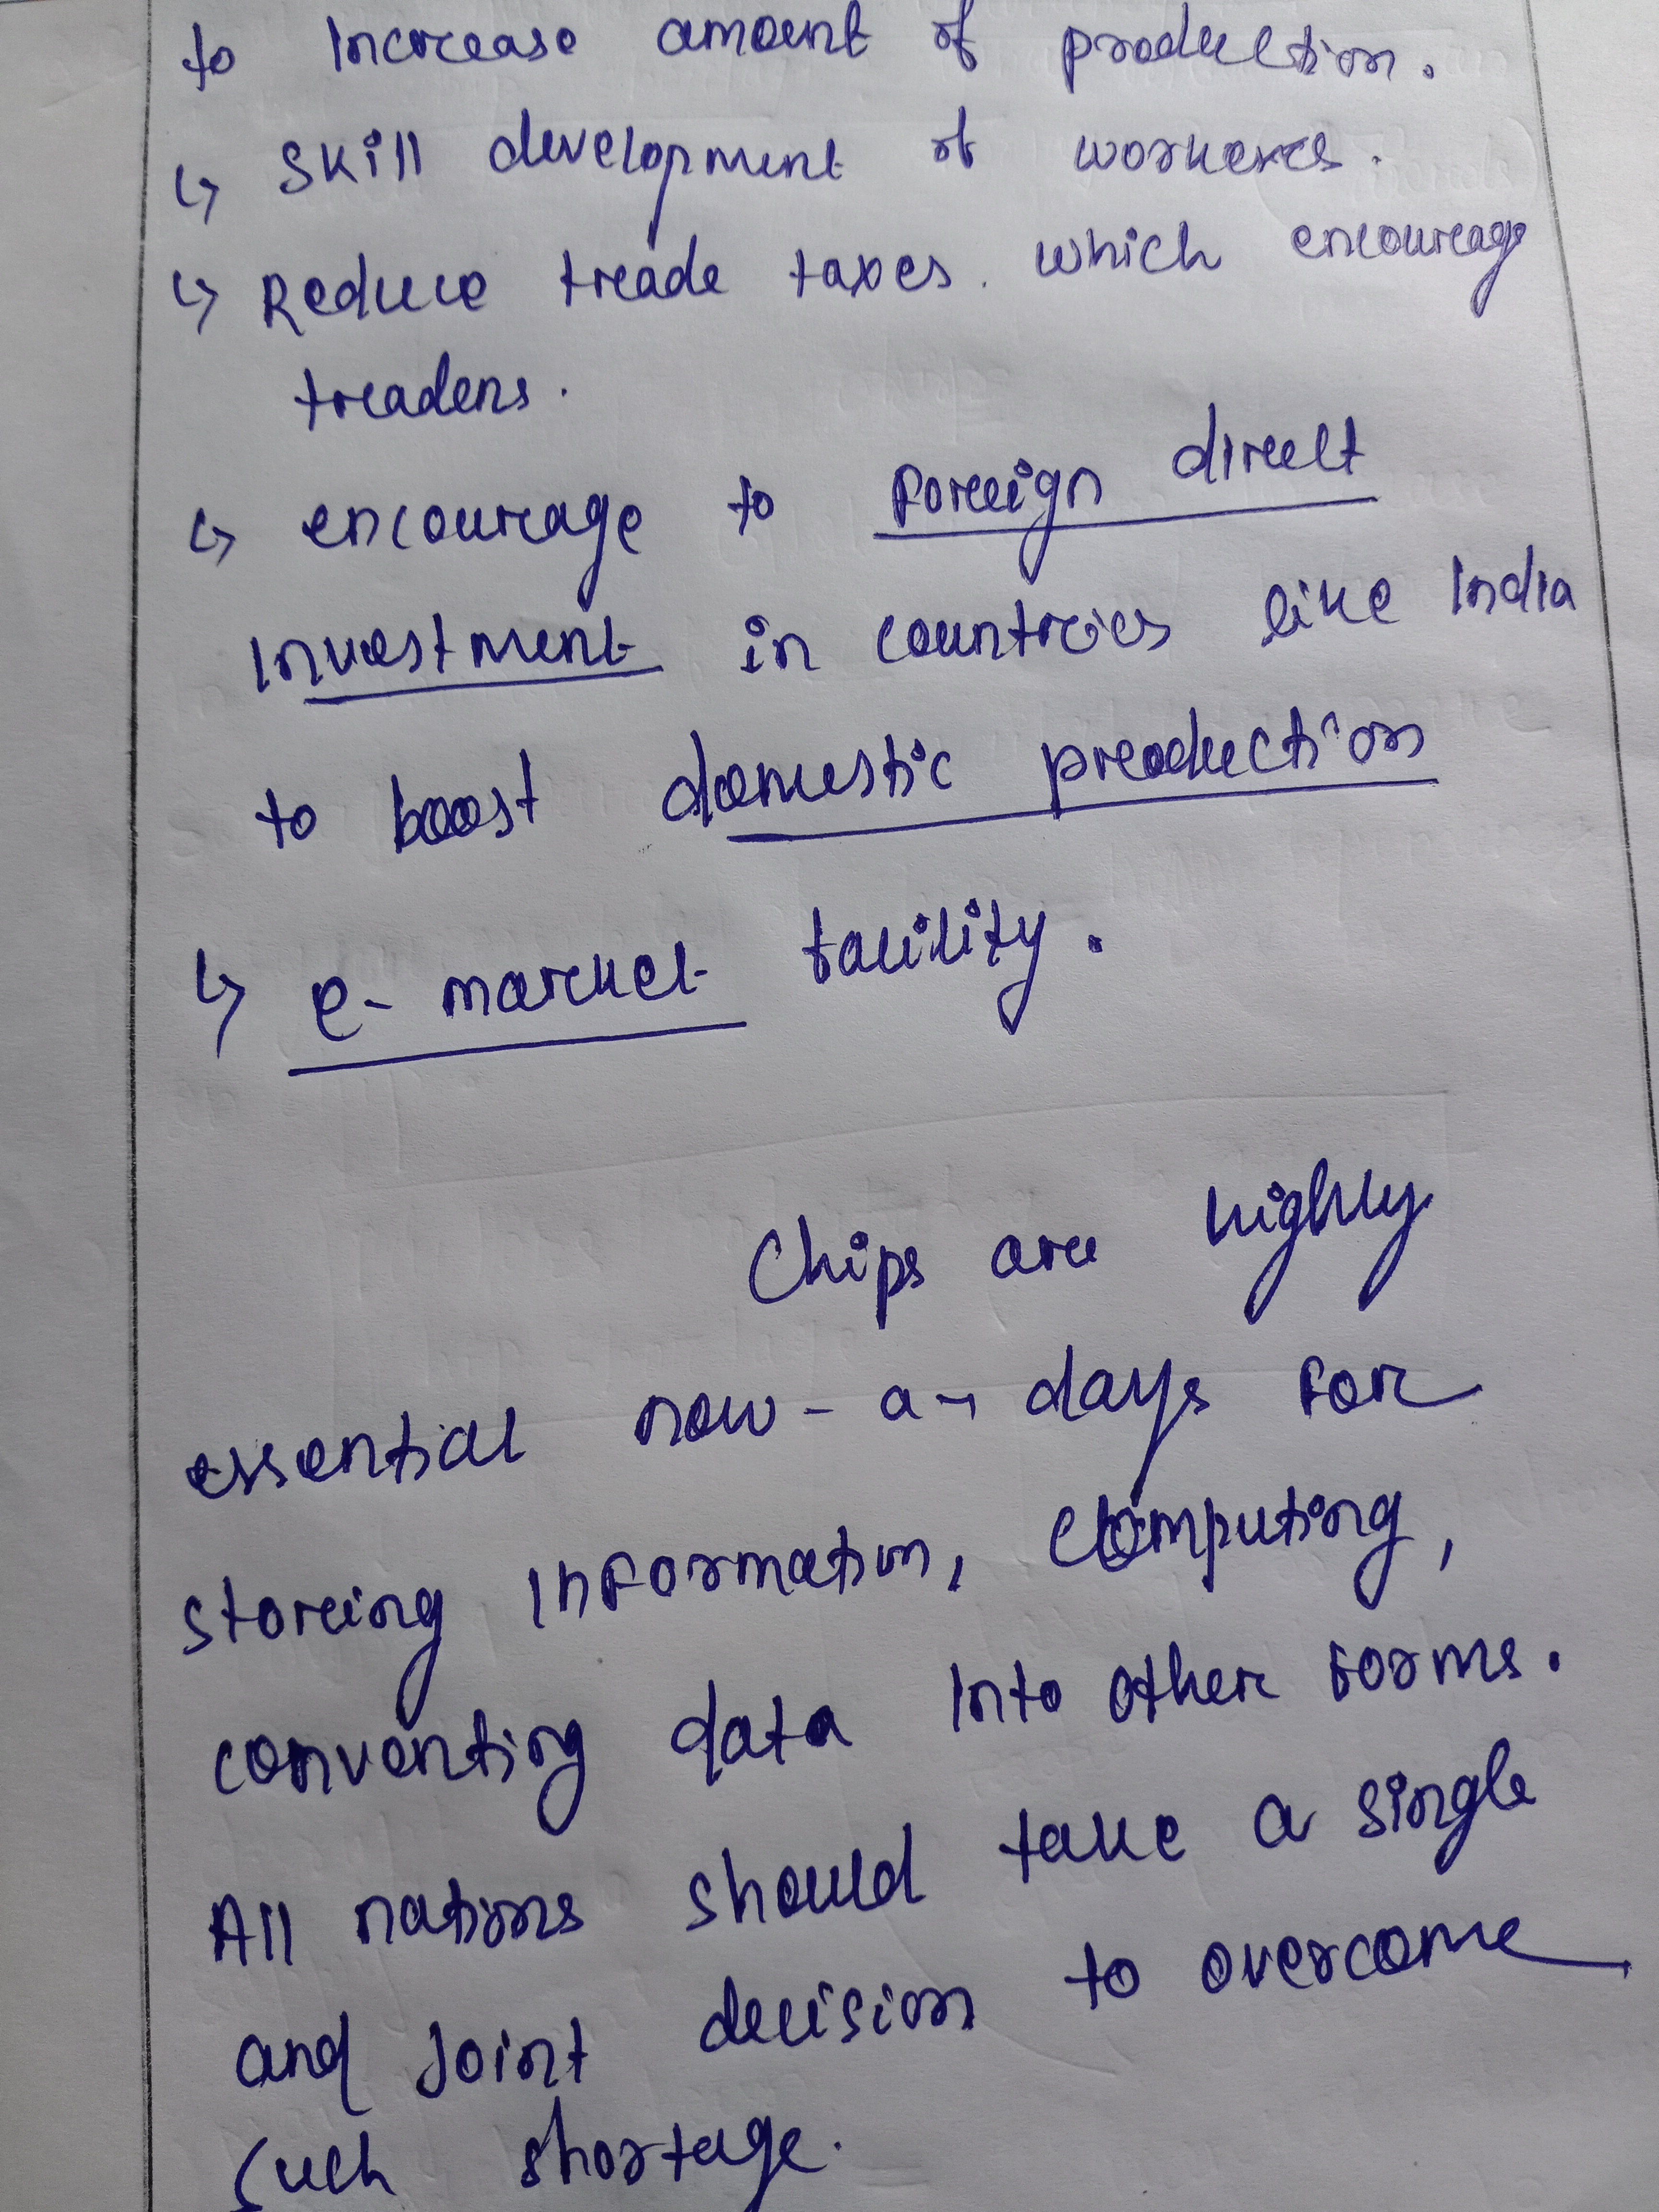 to increase amount of production.
↳ Skill development of workers.
↳ Reduce trade taxes. which encourage
traders.
↳ encourage to foreign direct
investment in countries like India
to boost domestic production
↳ e-market facility.
Chips are highly
essential now-a-days for
storing information, computing,
converting data into other forms.
All nations should take a single
and joint decision to overcome
such shortage.